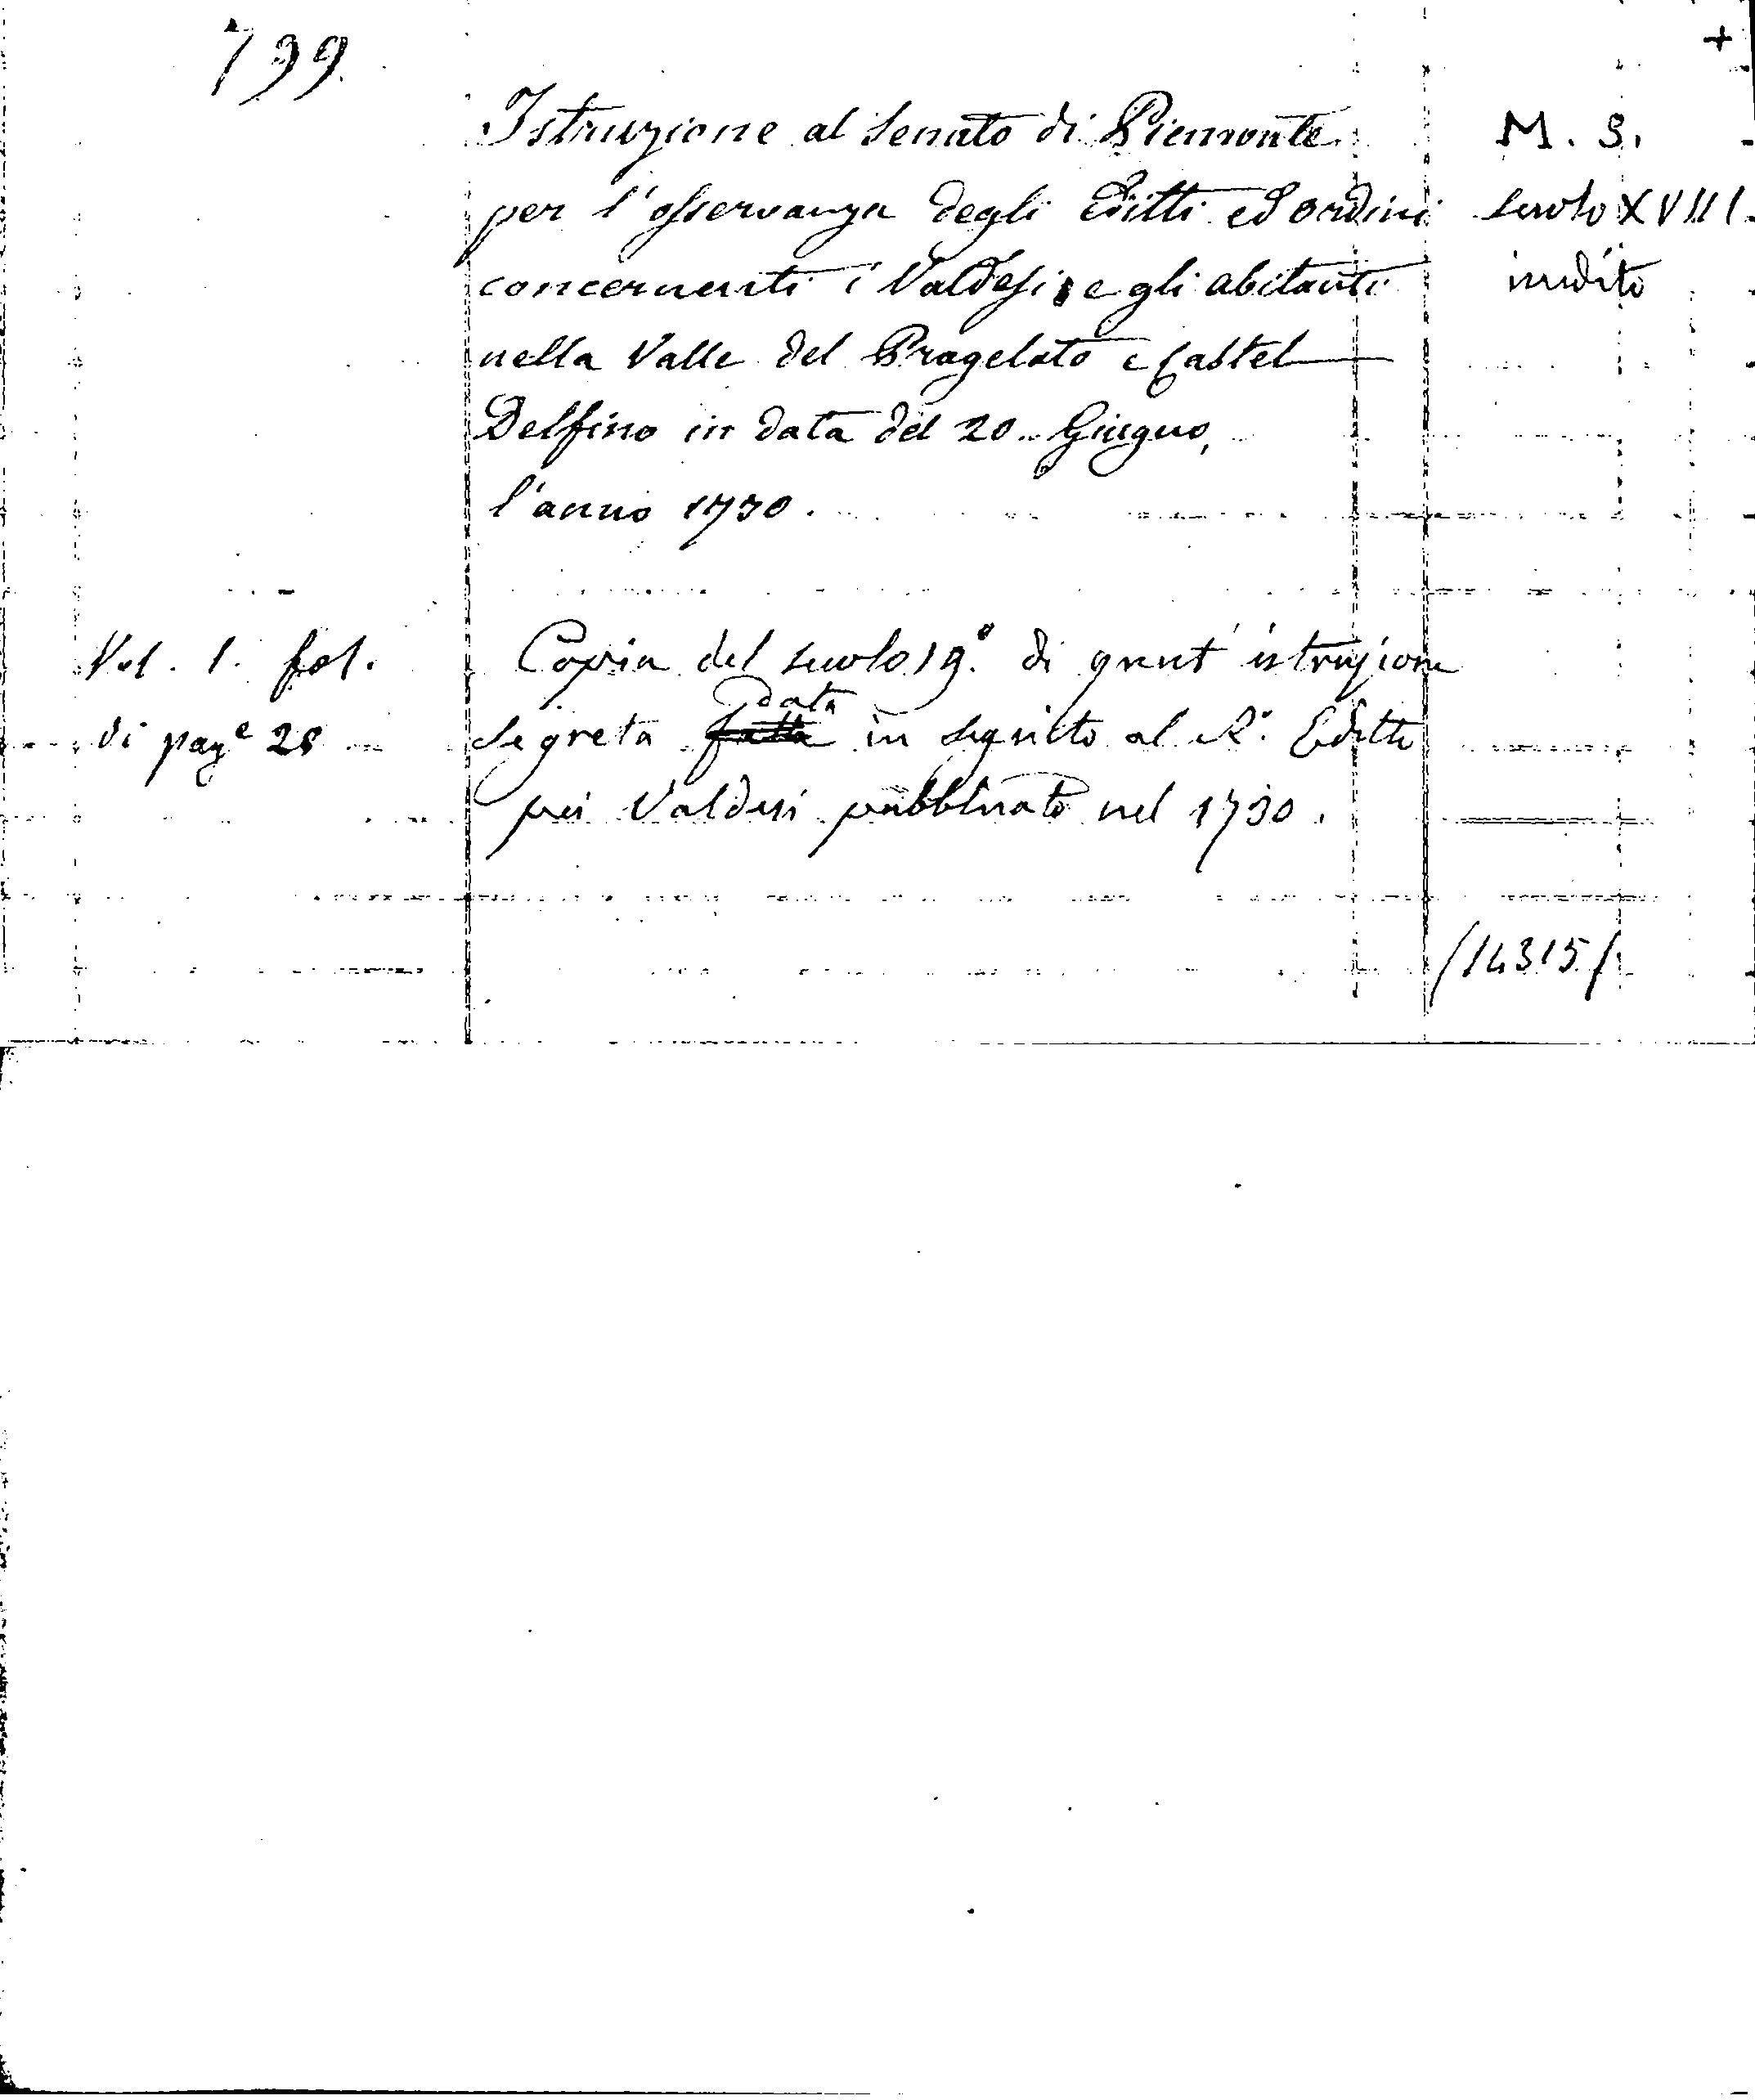 799.
+
Istruzione al Senato di Piemonte
per l'osservanza degli Editti ed ordini
concernenti i Valdesi, e gli abitanti
nella Valle del Pragelato e Castel
Delfino in data del 20. Giugno,
l'anno 1730.
M. S.
secolo XVIII
inedito
Vol. 1. fol.
di pag.e 28
Copia del secolo 19.° di quest'istruzione
segreta fatta data in seguito al R.° Editto
pei Valdesi pubblicato nel 1730.
/14315/